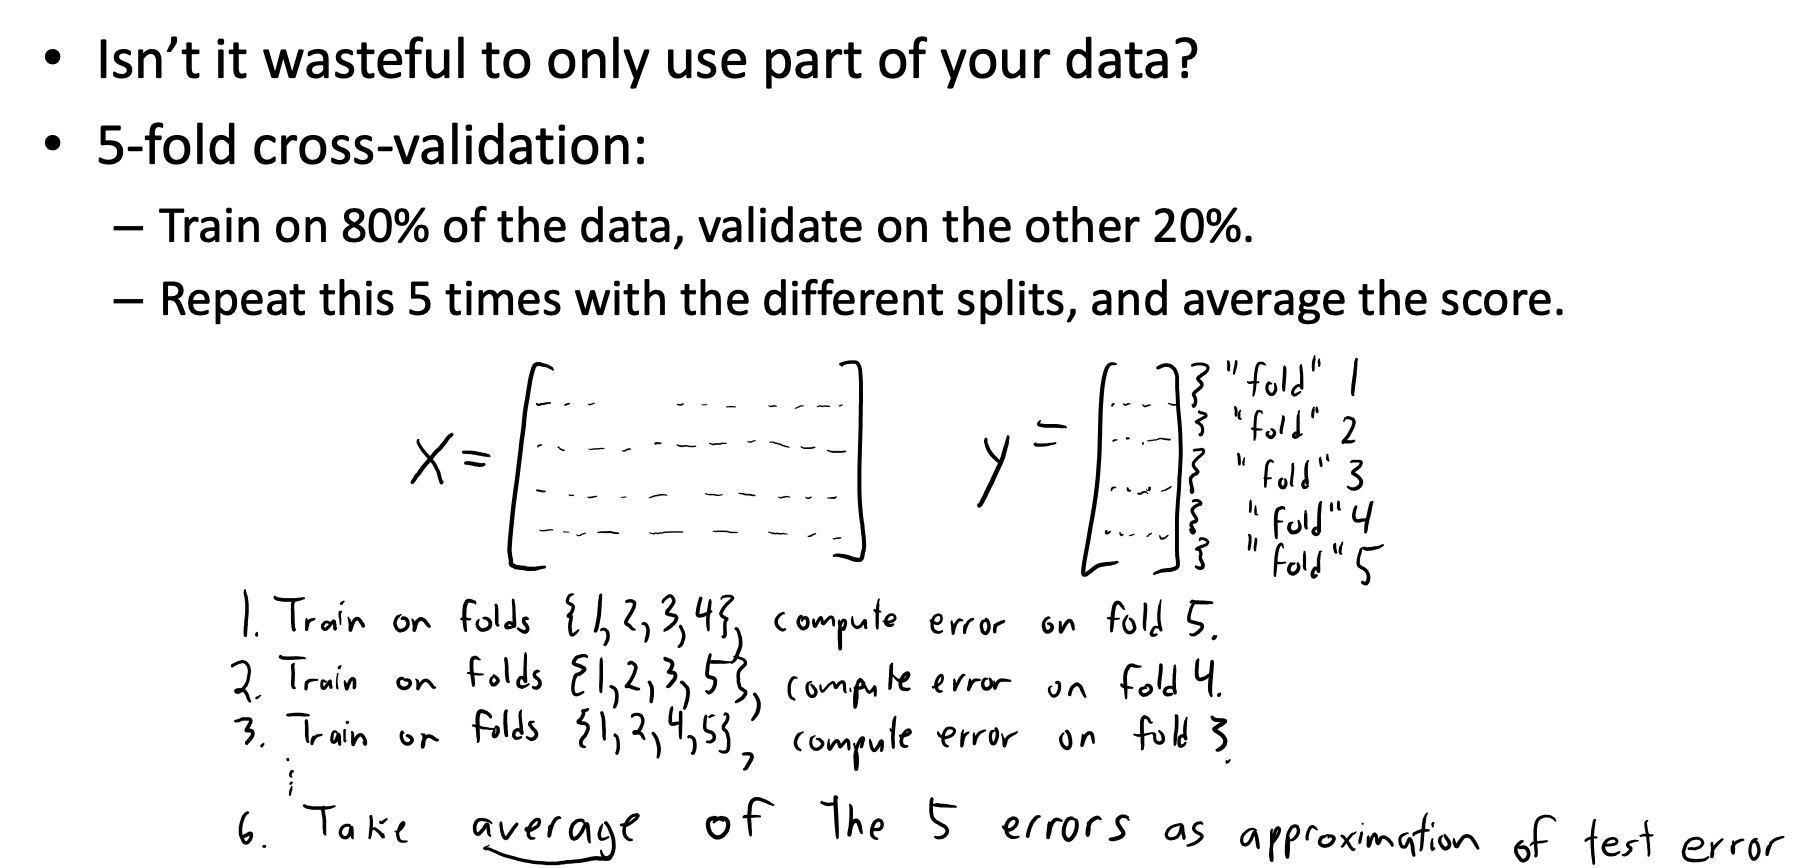 • Isn't it wasteful to only use part of your data?
• 5-fold cross-validation:
– Train on 80% of the data, validate on the other 20%.
– Repeat this 5 times with the different splits, and average the score.
X = y = } "fold" 1
} "fold" 2
} "fold" 3
} "fold" 4
} "fold" 5
1. Train on folds {1, 2, 3, 4}, compute error on fold 5.
2. Train on folds {1, 2, 3, 5}, compute error on fold 4.
3. Train on folds {1, 2, 4, 5}, compute error on fold 3.
⋮
6. Take average of the 5 errors as approximation of test error